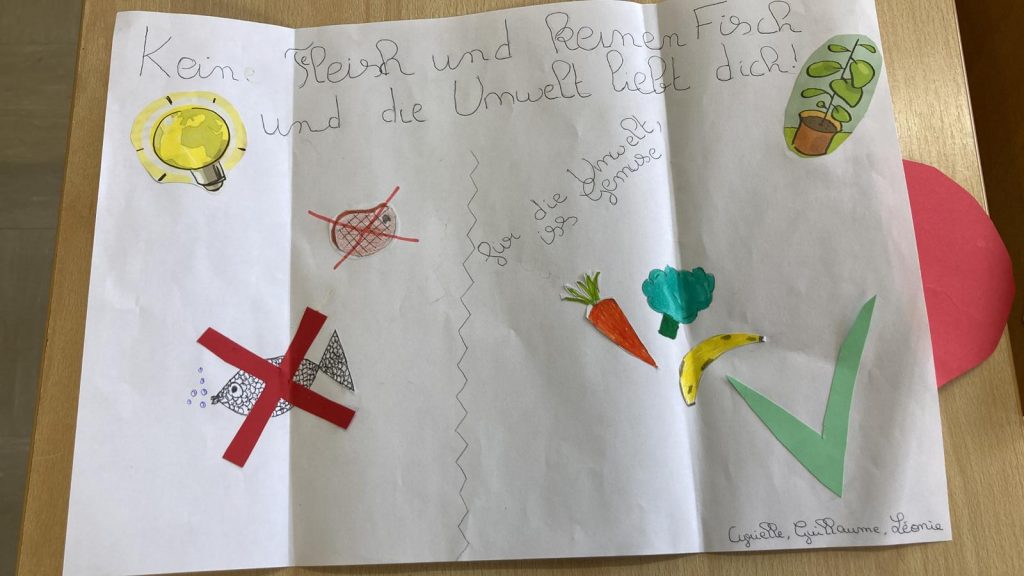 Kein Fleisch und keinen Fisch
und die Umwelt liebt dich!
für die Umwelt,
iss Gemüse
Guillaume, Léonie